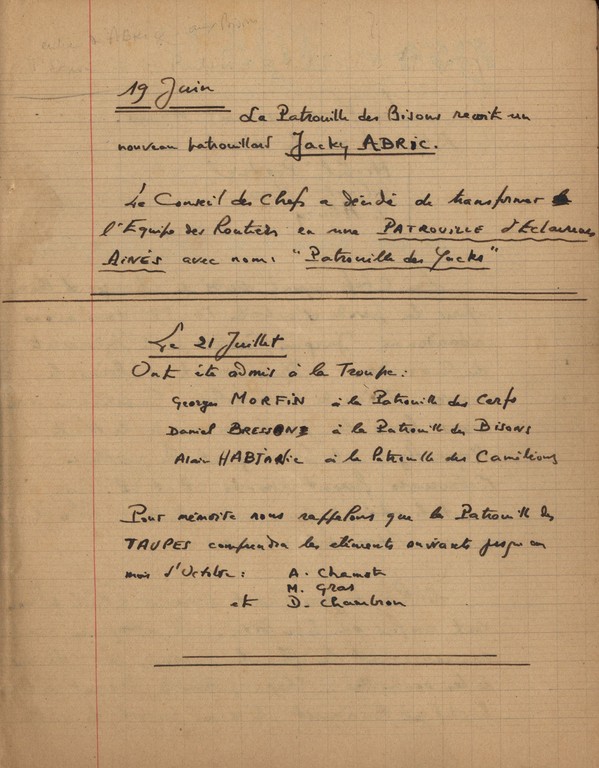 19 Juin
La Patrouille des Bisons reçoit un
nouveau patrouillard Jacky ABRIC.
Le Conseil des Chefs a décidé de transformer
l'Equipe des Routiers en une PATROUILLE d'Eclaireurs
AINÉS avec nom: "Patrouille des Yacks"
Le 21 Juillet
Ont été admis à la Troupe:
Georges MORFIN à la Patrouille des Cerfs
Daniel à la Patrouille des Bisons
Alain à la Patrouille des
Pour mémoire nous rappelons que la Patrouille des
TAUPES comprendra les éléments suivants jusqu'au
mois d'Octobre: A. Chamot
M. Gras
et D. Chambron